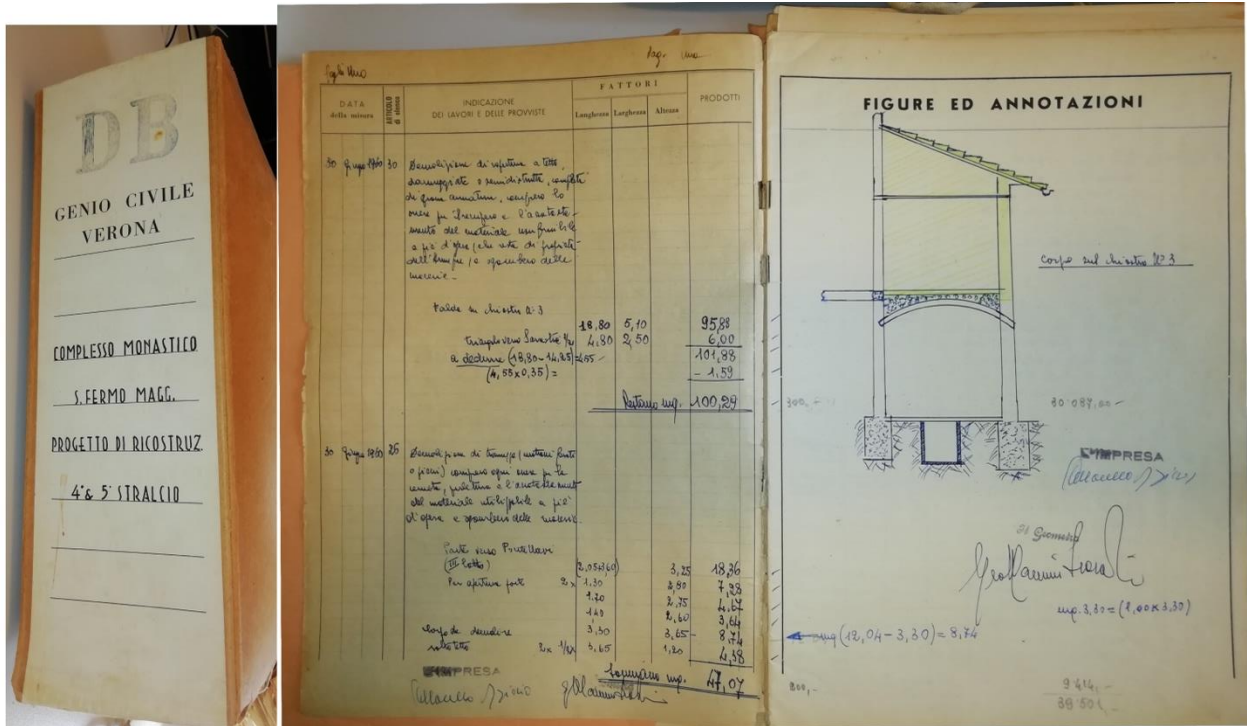 DB
GENIO CIVILE
VERONA
COMPLESSO MONASTICO
S. FERMO MAGG.
PROGETTO DI RICOSTRUZ.
4° & 5° STRALCIO
Pag. Uno
DATA
della misura
ARTICOLO
di elenco
INDICAZIONE
DEI LAVORI E DELLE PROVVISTE
FATTORI
Lunghezza Larghezza Altezza
PRODOTTI
30 Giugno 1960 30 Demolizione di copertura a tetto
danneggiate o semidistrutte, complete
di grossa armatura, compreso lo
onere per il recupero e l'accatasta-
mento del materiale
a piè d'opera (che resta di proprietà
dell'Impresa) e sgombero delle
macerie -
Falda su chiostro N° 3
18,80 5,10 95,88
4,80 2,50 6,00
a dedurre (18,80 - 14,25) = 4,55 - 101,88
(4,55 x 0,35) = - 1,59
Restano mq. 100,29
30 Giugno 1960 25 Demolizione di tramezze (mattoni forati
o pieni) compreso ogni onere per la
cernita, pulitura e l'accatastamento
del materiale utilizzabile a piè
d'opera e sgombero delle macerie.
Parte verso
(III Lotto) 3,25 18,36
Per apertura porte 2x 1.30 2,80 7,28
1.70 2,75 4,67
1.40 2,60 3,64
da demolire 3,30 3,65 8,74
sottotetto 2x 1/2x 3,65 1,20 4,38
Sommano mq. 47,07
L'IMPRESA
FIGURE ED ANNOTAZIONI
corpo sul chiostro N° 3
300,-
30 087,00 -
L'IMPRESA
Il Geometra
mq. 3,30 = (1,00 x 3,30)
mq (12,04 - 3,30) = 8,74
800,-
9 414,-
39 501,-